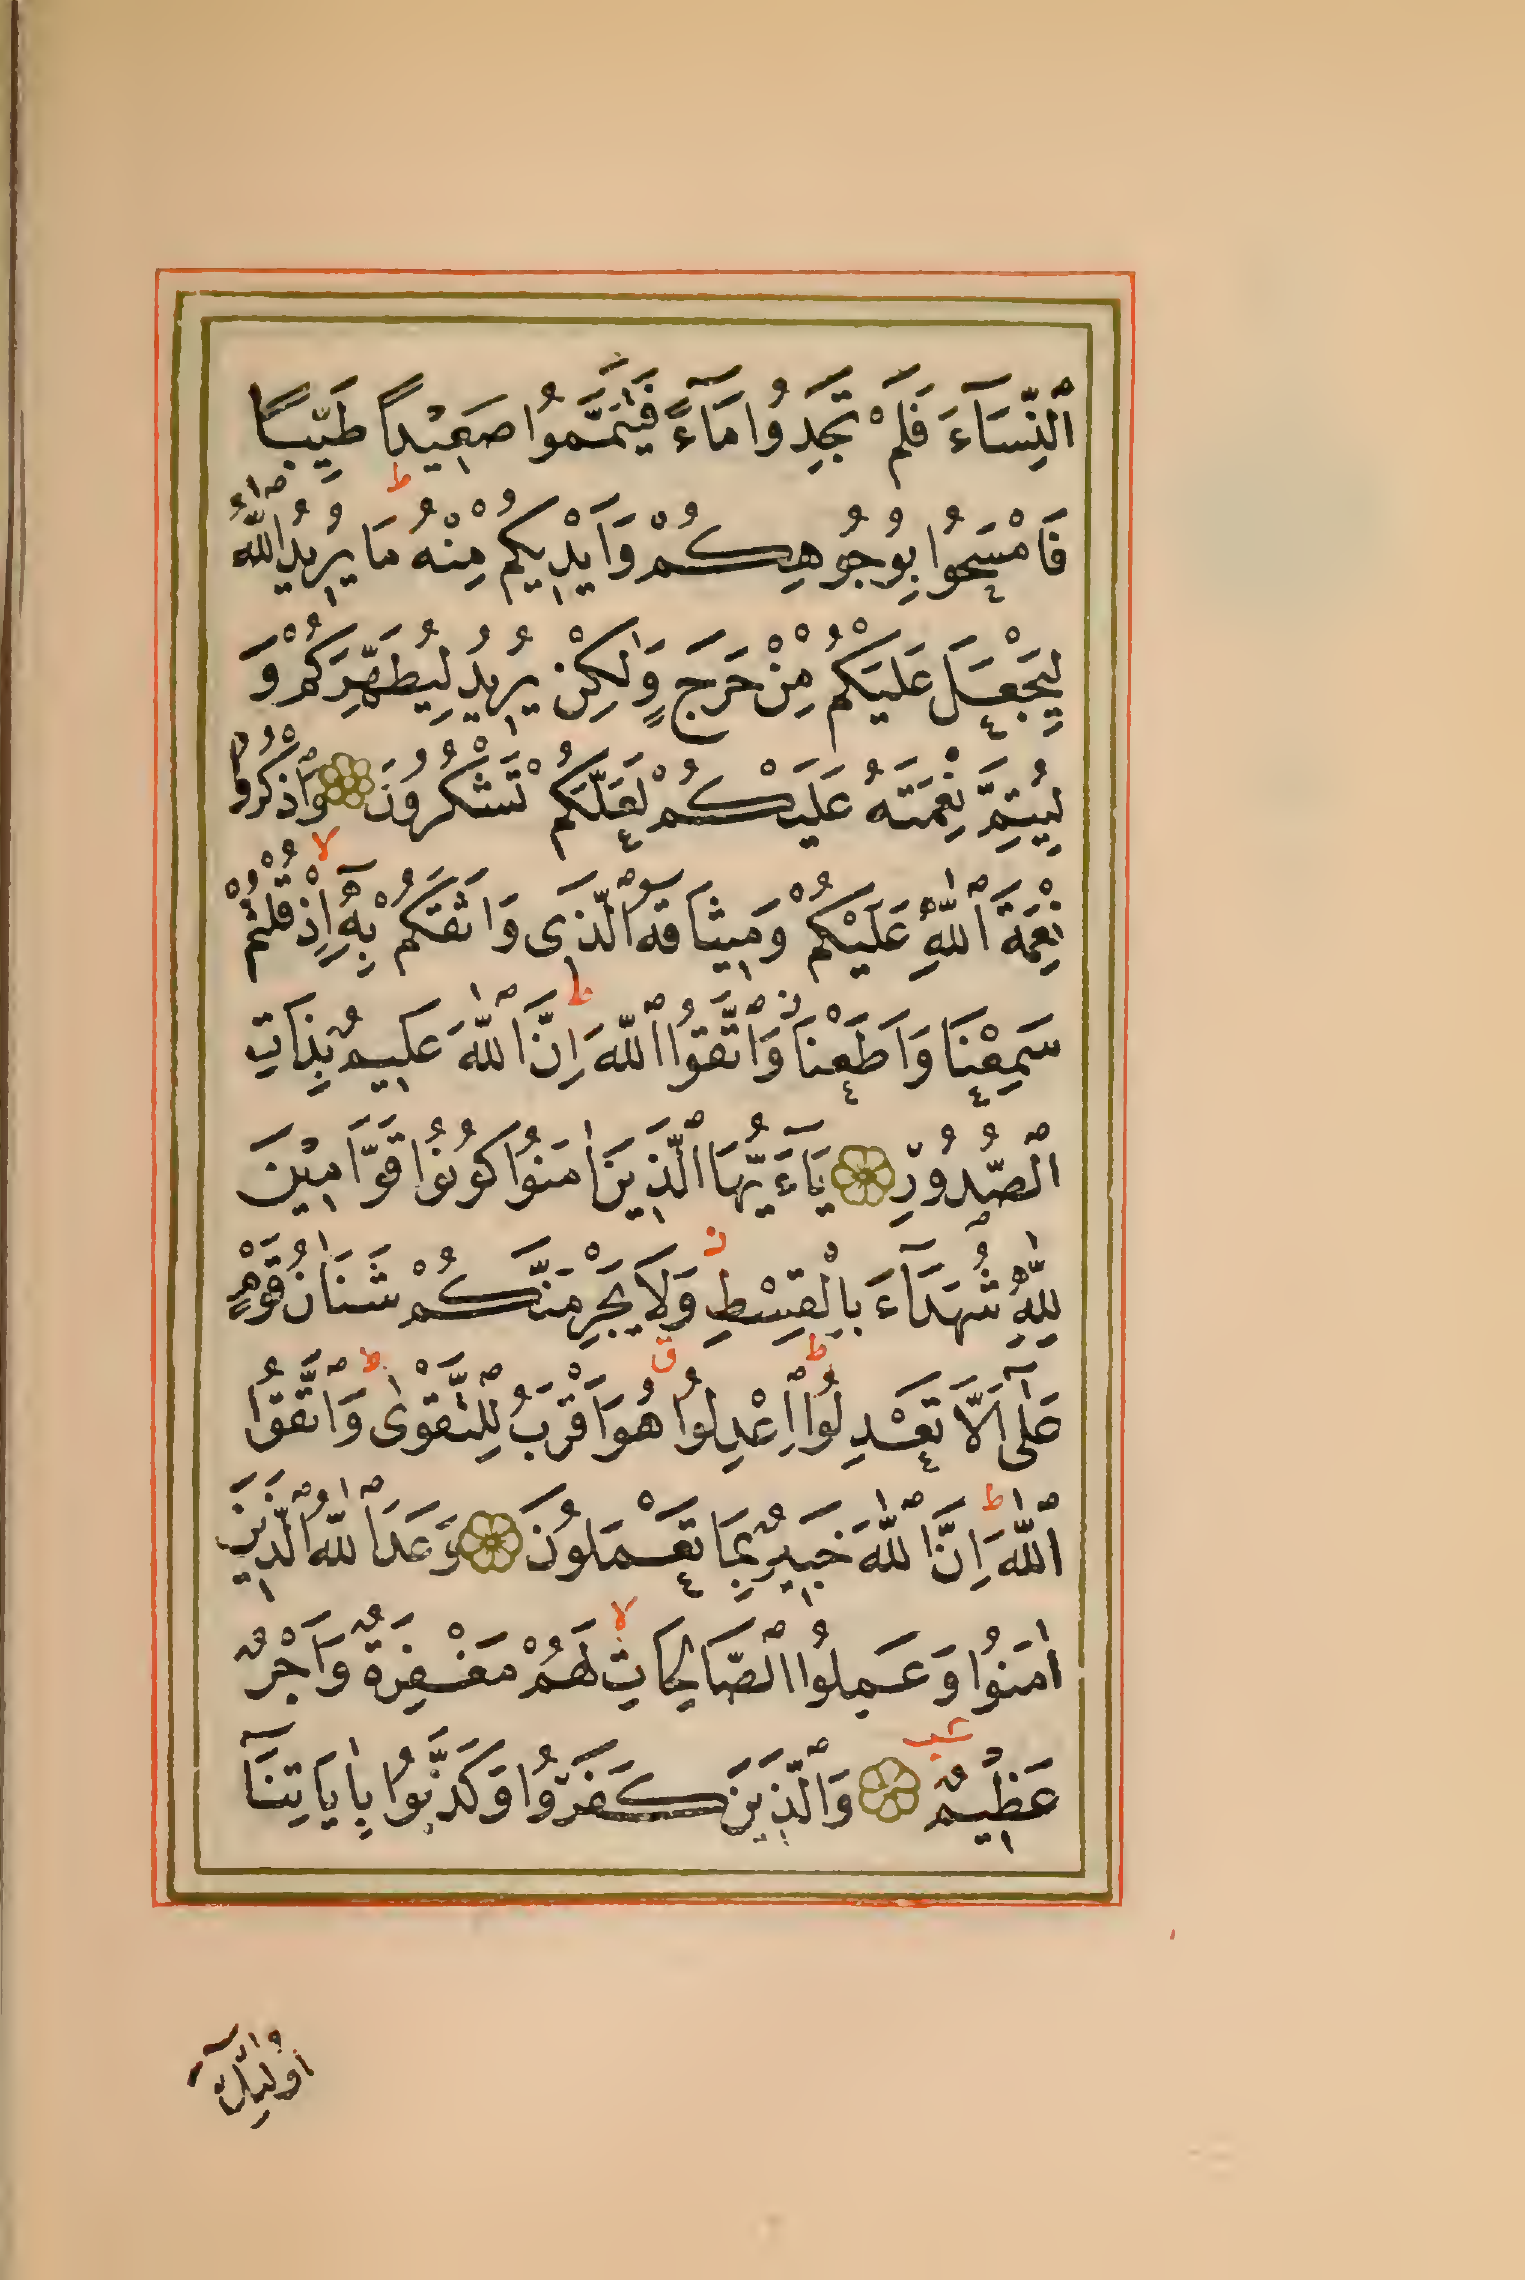 ٱلنِّسَآءَ فَلَمْ تَجِدُوا مَآءً فَتَيَمَّمُوا صَعِيْدًا طَيِّبًا
فَامْسَحُوا بِوُجُوُهِكُمْ وَاَيْدِيكُمْ مِنْهُ مَا يُرِيدُ اللّٰهُ
لِيَجْعَلَ عَلَيْكُمْ مِنْ حَرَجٍ وَلٰكِنْ يُرِيدُ لِيُطَهِّرَكُمْ وَ
لِيُتِمَّ نِعْمَتَهُ عَلَيْكُمْ لَعَلَّكُمْ تَشْكُرُونَ وَاذْكُرُوا
نِعْمَةَ ٱللّٰهِ عَلَيْكُمْ وَمِيثَاقَهُ ٱلَّذِى وَاثَقَكُمْ بِهِٓ اِذْ قُلْتُمْ
سَمِعْنَا وَاَطَعْنَا وَاتَّقُوا ٱللّٰهَ اِنَّ ٱللّٰهَ عَلِيمٌ بِذَاتِ
ٱلصُّدُورِ يَآءَيُّهَا ٱلَّذِينَ اٰمَنُوا كُونُوا قَوَّامِيْنَ
لِلّٰهِ شُهَدَآءَ بِالْقِسْطِ وَلَا يَجْرِمَنَّكُمْ شَنَاٰنُ قَوْمٍ
عَلٰٓى اَلَّا تَعْدِلُوا اِعْدِلُوا هُوَ اَقْرَبُ لِلتَّقْوٰى وَاتَّقُوا
ٱللّٰهَ اِنَّ ٱللّٰهَ خَبِيرٌ بِمَا تَعْمَلُونَ وَعَدَ ٱللّٰهُ ٱلَّذِينَ
اٰمَنُوا وَعَمِلُوا ٱلصَّالِحَاتِ لَهُمْ مَغْفِرَةٌ وَاَجْرٌ
عَظِيمٌ وَٱلَّذِينَ كَفَرُوا وَكَذَّبُوا بِاٰيَاتِنَآ
اُولٰٓئِكَ